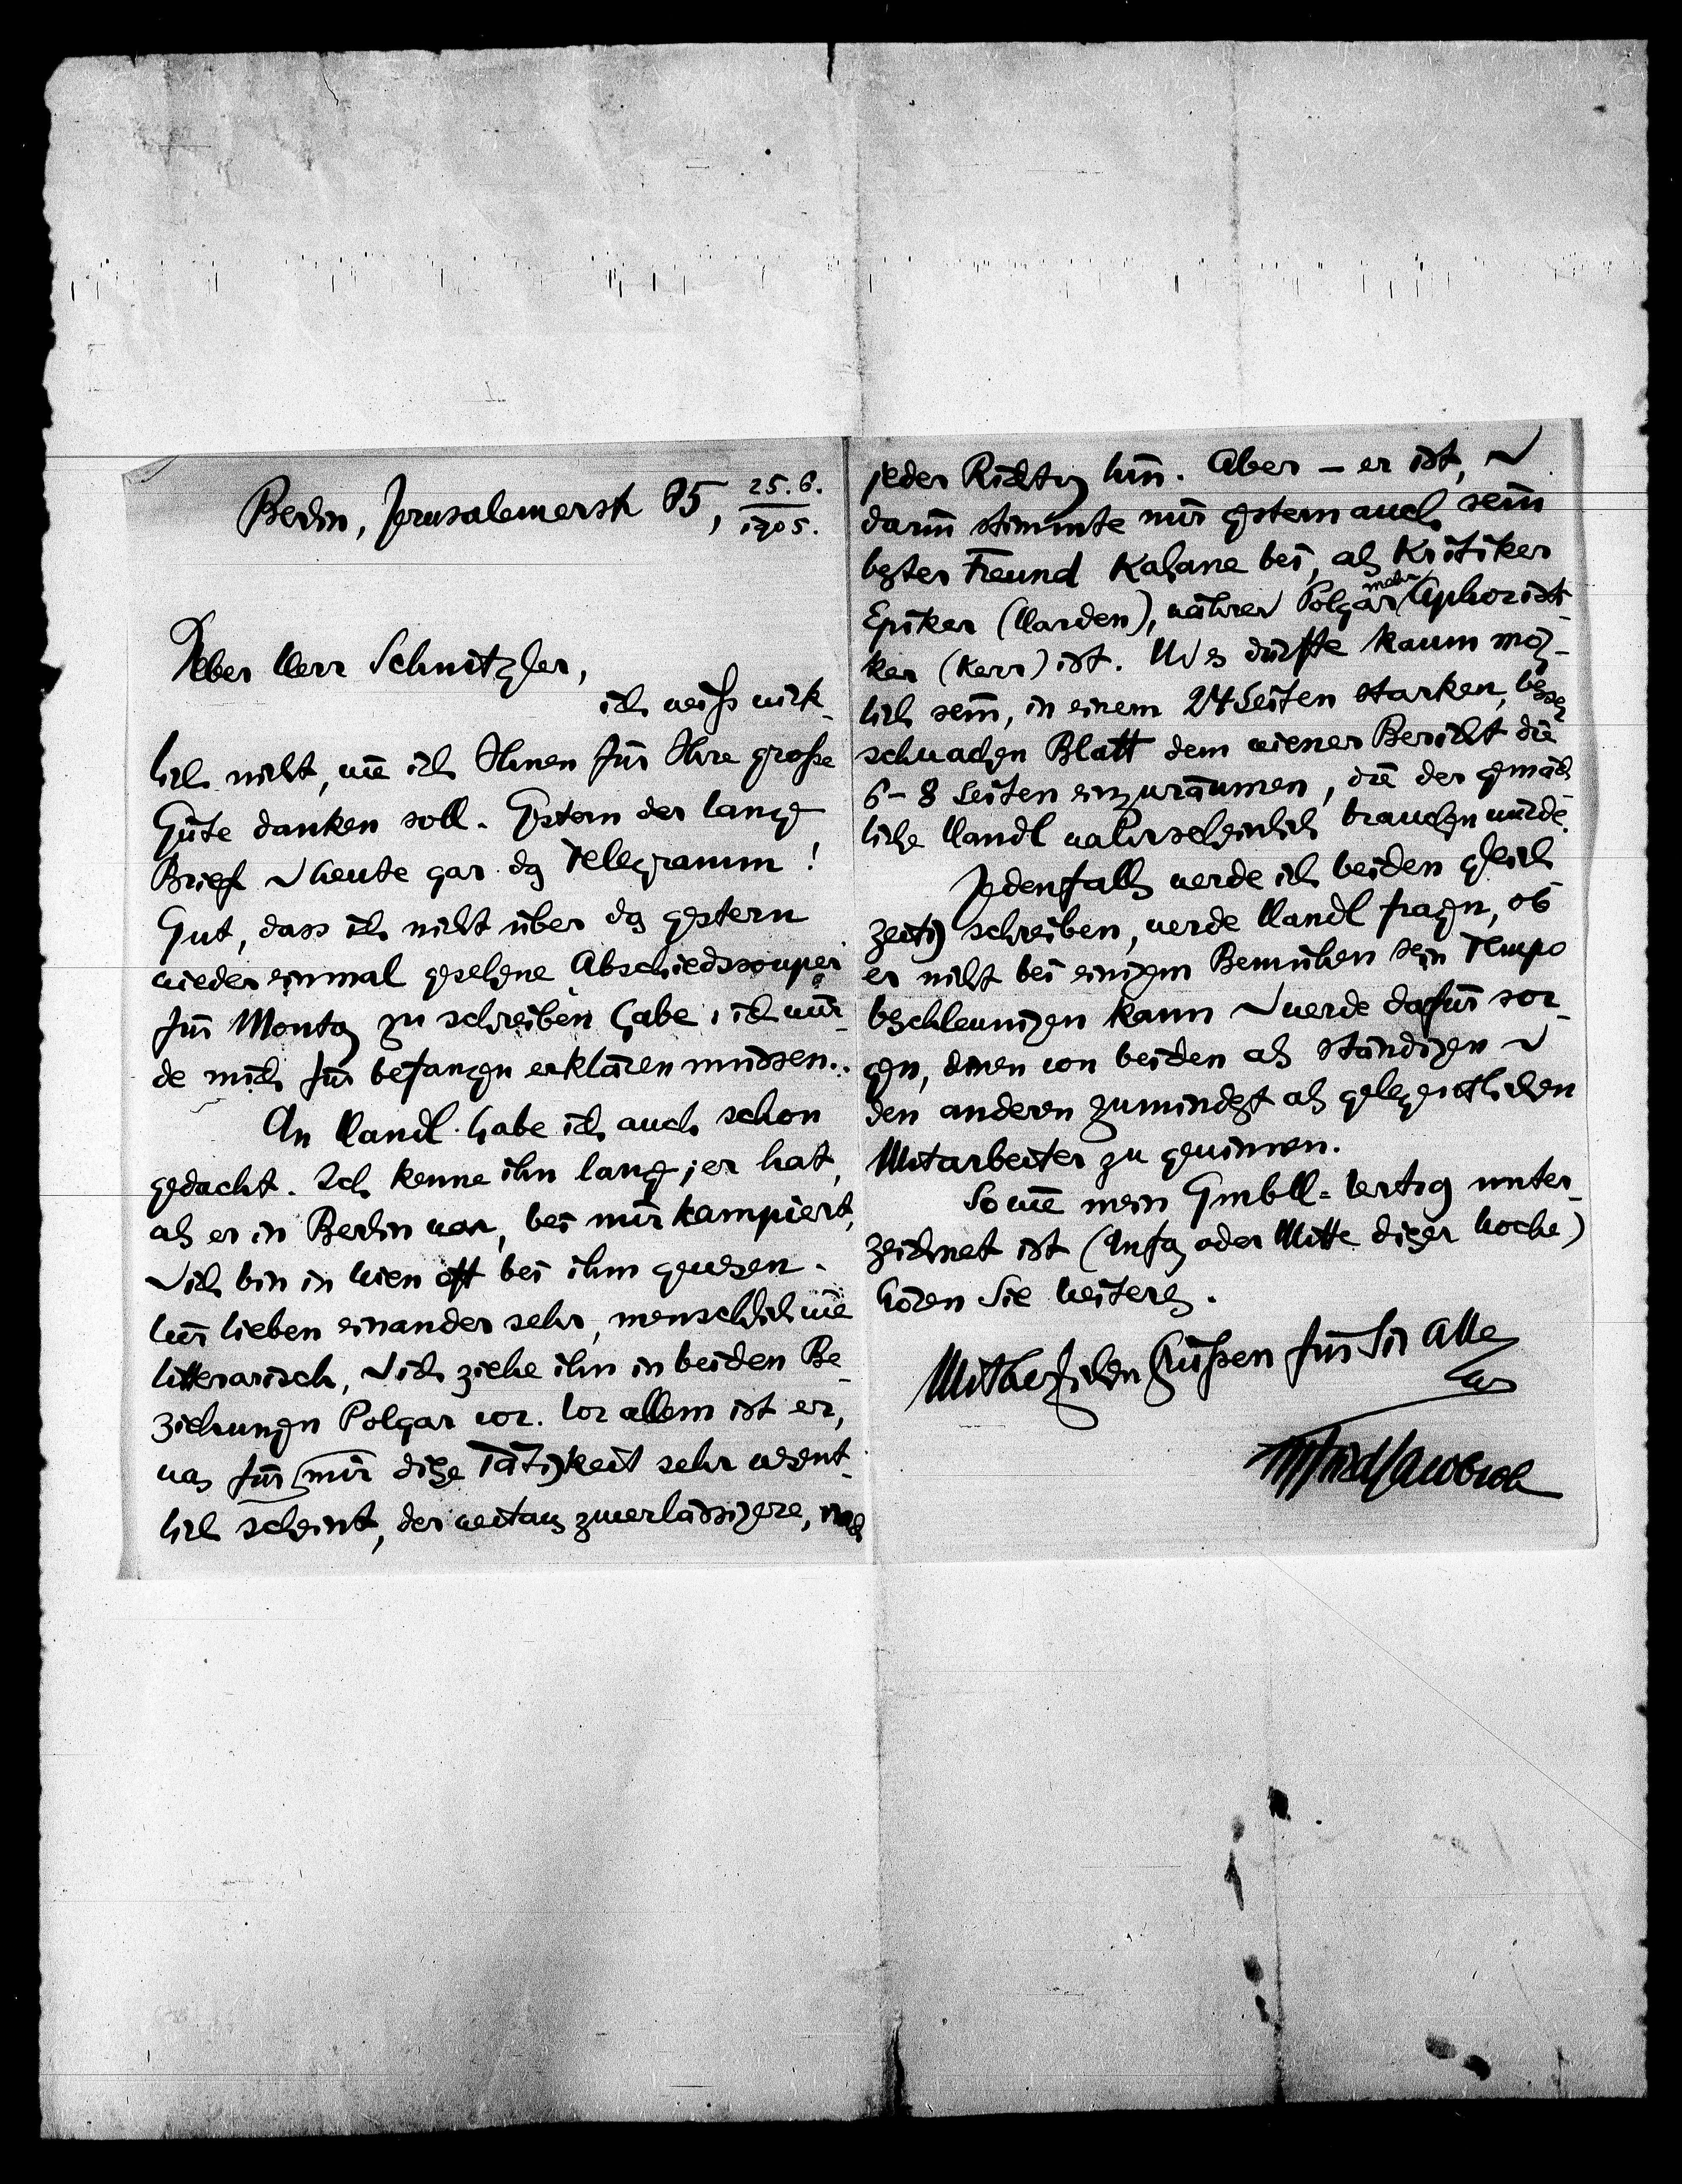 Berlin, Jerusalemerstr 65, 25.6.
1905.
Lieber Herr Schnitzler,
ich weiß wirk-
lich nicht, wie ich Ihnen für Ihre große
Güte danken soll. Gestern der lange
Brief u heute gar das Telegramm!
Gut, dass ich nicht über das gestern
wieder einmal gesehene Abschiedssouper
für Montag zu schreiben habe, ich wür-
de mich für befangen erklären müssen..
An Handl habe ich auch schon
gedacht. Ich kenne ihn lange; er hat,
als er in Berlin war, bei mir kampiert,
u ich bin in Wien oft bei ihm gewesen.
Wir lieben einander sehr, menschlich wie
litterarisch, u ich ziehe ihn in beiden Be-
ziehungen Polgar vor. Vor allem ist er,
was für mir diese Tätigkeit sehr wesent-
lich scheint, der weitaus zuverlässigere, nach
jeder Richtung hin. Aber – er ist, u
darin stimmte mir gestern auch sein
bester Freund Kahane bei, als Kritiker
Epiker (Harden), während Polgar mehr Aphoristi-
ker (Kerr) ist. Und es dürfte kaum mög-
lich sein, in einem 24 Seiten starken,
schwachen Blatt dem wiener Bericht die
6-8 Seiten einzuräumen, die der gemäch-
liche Handl wahrscheinlich brauchen würde.
Jedenfalls werde ich beiden gleich
zeitig schreiben, werde Handl fragen, ob
er nicht bei einigem Bemühen sein Tempo
beschleunigen kann u werde dafür sor-
gen, einen von beiden als ständigen u
den anderen zumindest als gelegentlichen
Mitarbeiter zu gewinnen.
Sowie mein GmbH-Vertrag unter-
zeichnet ist (Anfang oder Mitte dieser Woche)
hören Sie Weiteres.
Mit herzlichen Grüßen für Sie Alle
Ihr
Siegfried Jacobsohn